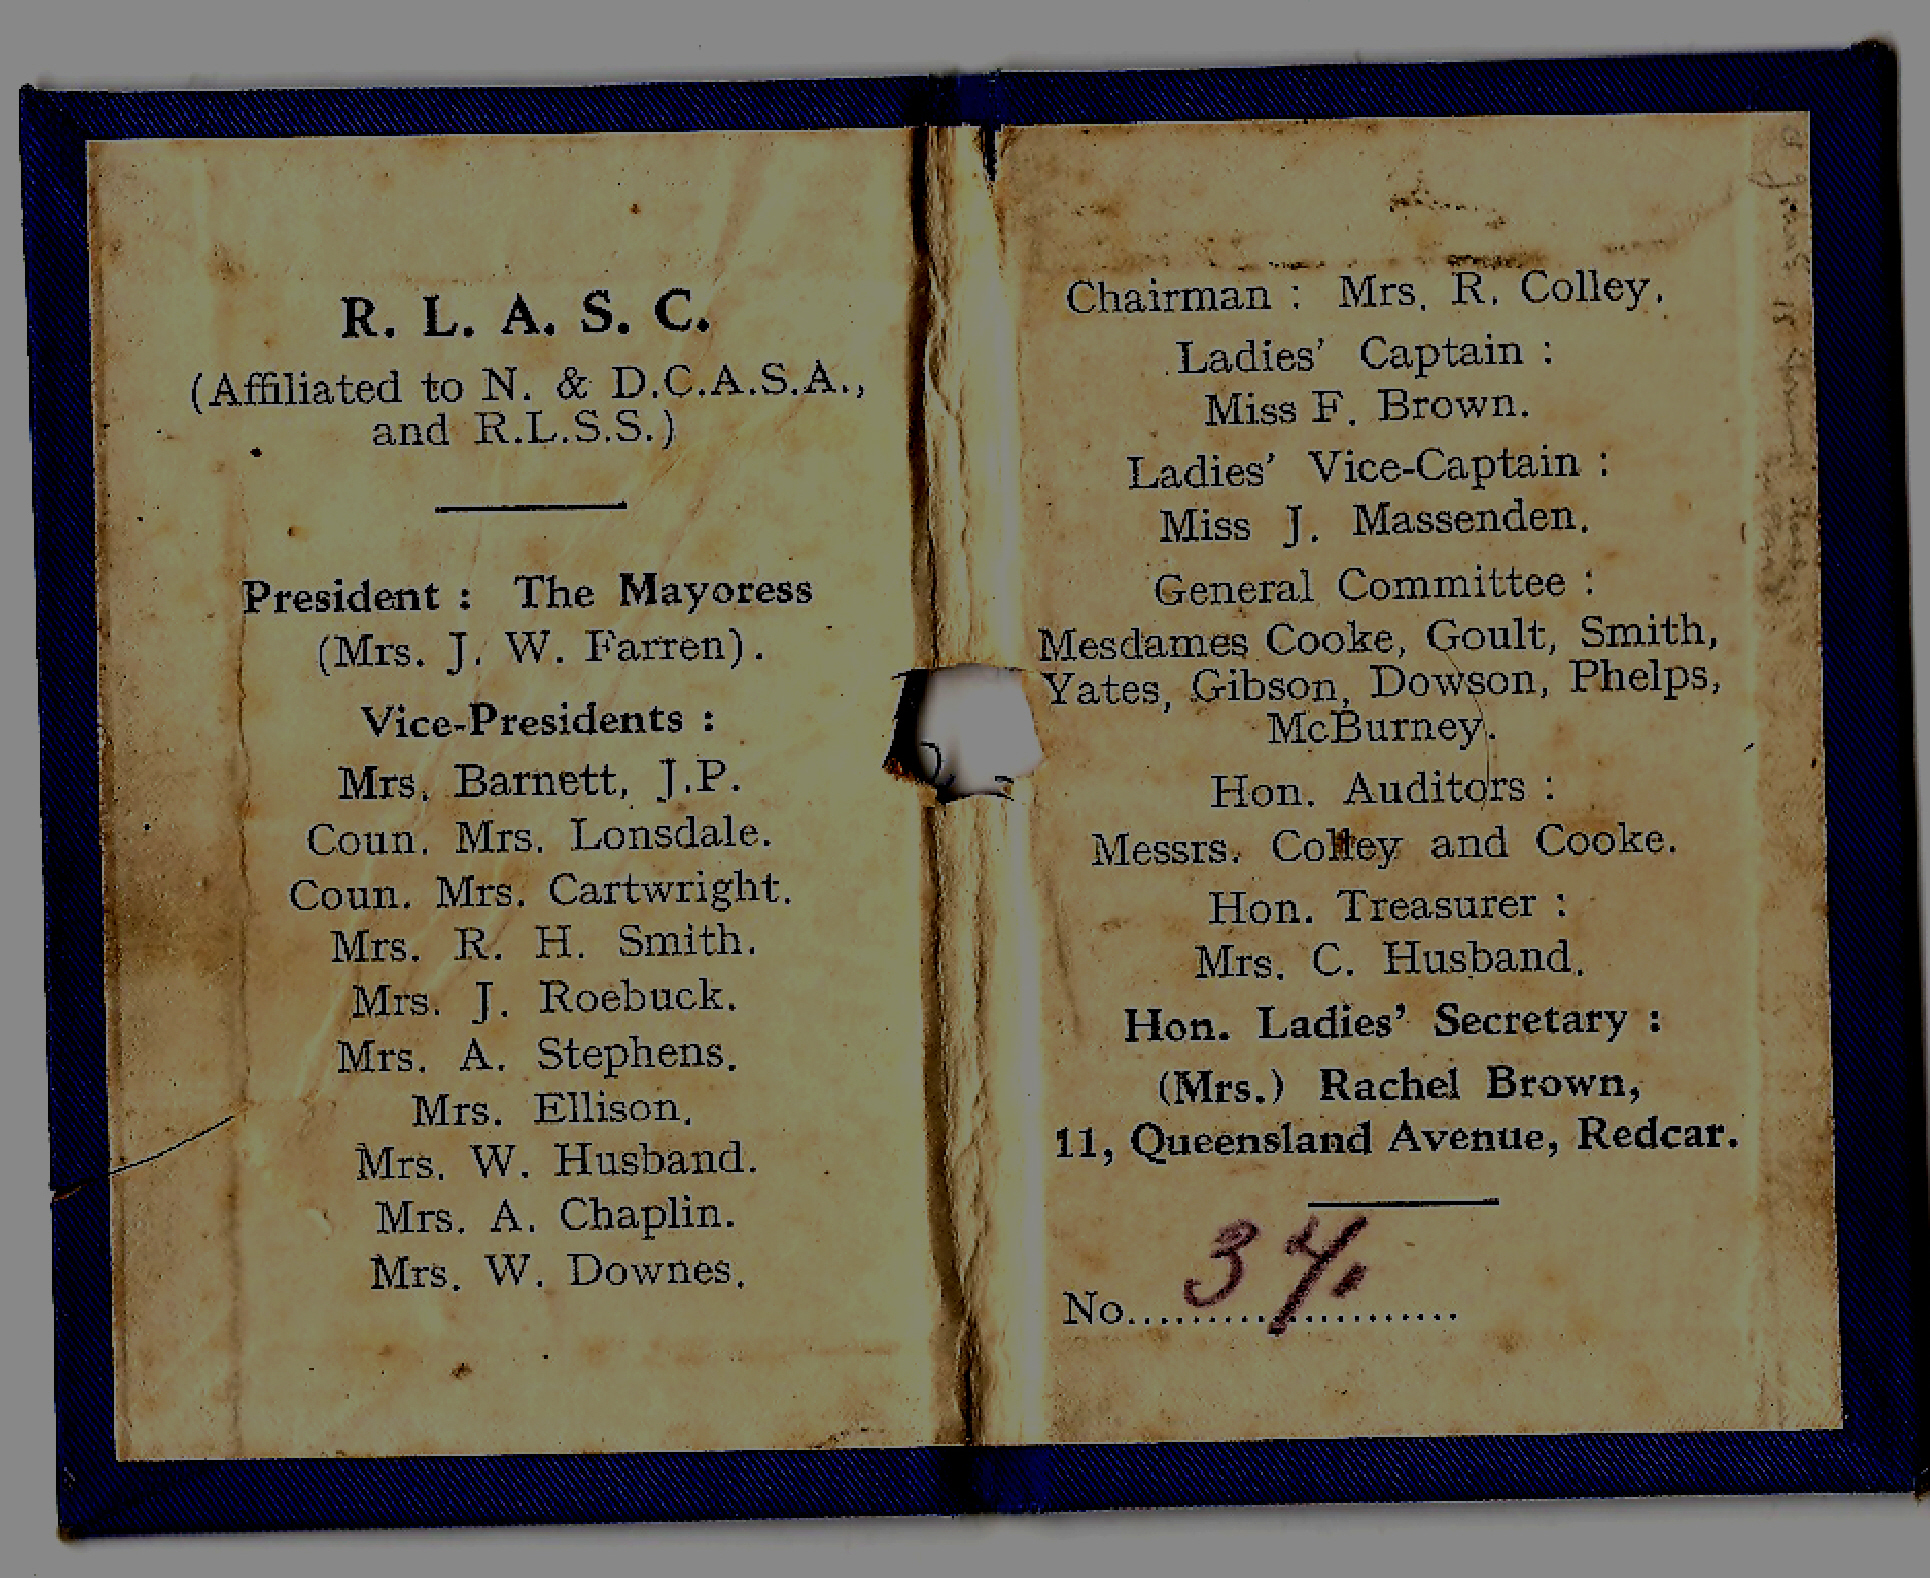 R. L. A. S. C.
(Affiliated to N. & D.C.A.S.A.,
and R.L.S.S.)
President : The Mayoress
(Mrs. J. W. Farren).
Vice-Presidents :
Mrs. Barnett, J.P.
Coun. Mrs. Lonsdale.
Coun. Mrs. Cartwright.
Mrs. R. H. Smith.
Mrs. J. Roebuck.
Mrs. A. Stephens.
Mrs. Ellison.
Mrs. W. Husband.
Mrs. A. Chaplin.
Mrs. W. Downes.
Chairman : Mrs. R. Colley.
Ladies' Captain :
Miss F. Brown.
Ladies' Vice-Captain :
Miss J. Massenden.
General Committee :
Mesdames Cooke, Goult, Smith,
Yates, Gibson, Dowson, Phelps,
McBurney.
Hon. Auditors :
Messrs. Colley and Cooke.
Hon. Treasurer :
Mrs. C. Husband.
Hon. Ladies' Secretary :
(Mrs.) Rachel Brown,
11, Queensland Avenue, Redcar.
No. 34